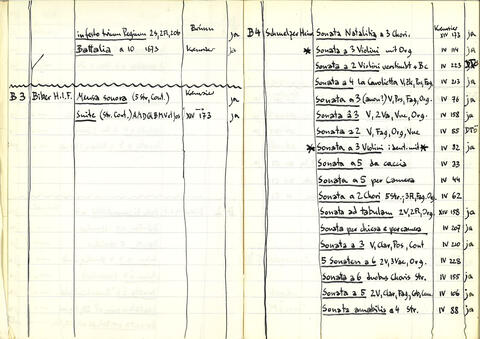 in festo trium Regium 2S, 2Fl, 2ob Brünn ja
Battalia a 10 1673 Kremsier ja
B 3 Biber H.I.F. Mensa sonora (5 Str, Cont.) Kremsier ja
Suite (Str. Cont.) XIV 173 ja
B 4 Schmelzer Sonata Natalitia a 3 Chori. Kremsier XIV 173 ja
* Sonata a 3 Violini mit Org IV 114 ja
Sonata a 2 Violini verstimbt + Bc IV 223
Sonata a 4 La Carolietta V, Pos, Fag IV 213 ja
Sonata a 3 V, Pos, Fag, Org. IV 76 ja
Sonata à 3 V, 2Va, Vne, Org IV 158 ja
Sonata a 2 V, Fag, Org, Vne IV 55 DTÖ
* Sonata a 3 Violini ident. mit * IV 82 ja
Sonata a 5 da caccia IV 33
Sonata a 5 per Camera IV 44
Sonata a 2 Chori 5 Str.; 3Fl, Fag, Org. IV 62
Sonata ad tabulam 2V, 2Fl, Org. XIV 158 ja
Sonata per chiesa e per camera IV 207 ja
Sonata a 3 V, Clar, Pos, Cont IV 210 ja
5 Sonaten a 6 2V, 3Vae, Org. IV 228
Sonata a 6 duobus Choris Str. IV 155 ja
Sonata a 5 2V, Clar, Fag, IV 106 ja
Sonata amabilis a 4 Str. IV 88 ja